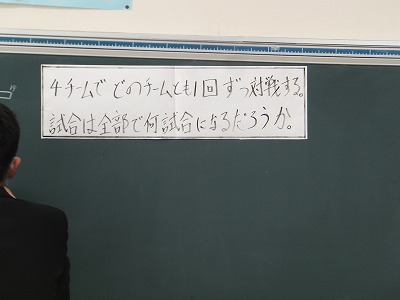 4チームで どのチームとも1回ずつ対戦する。
試合は全部で何試合になるだろうか。